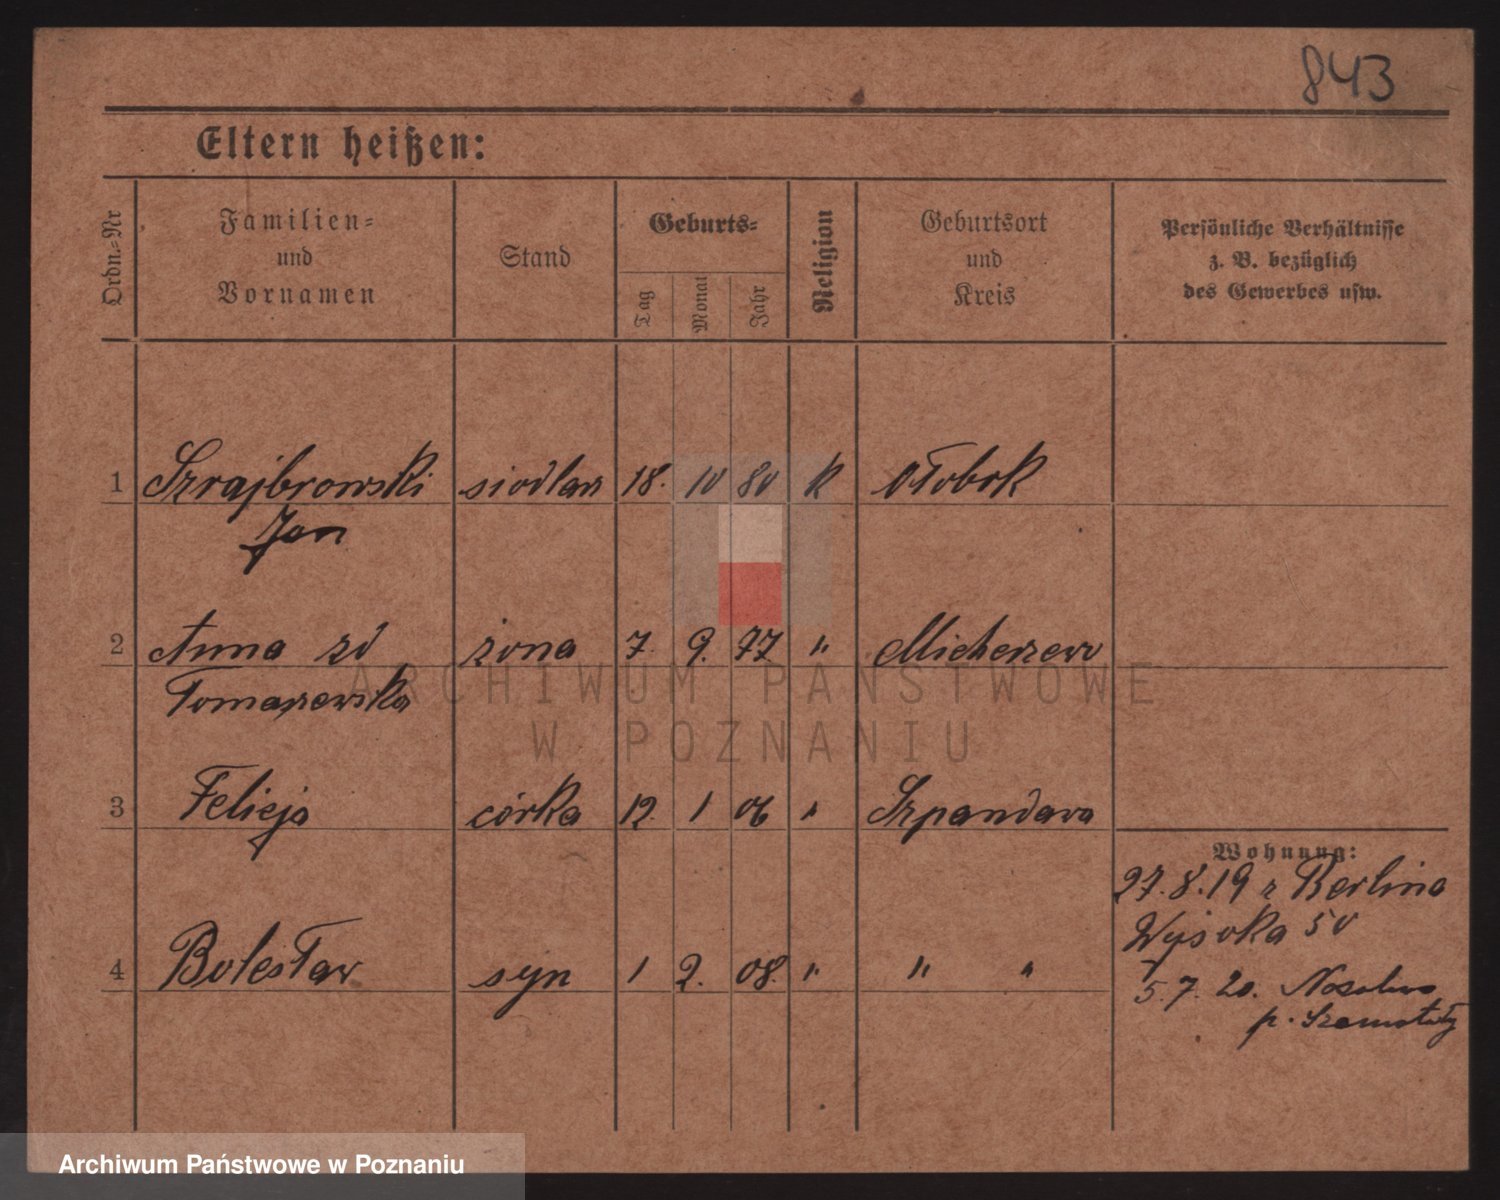 843
Eltern heißen:
Ordn.=Nr
Familien=
und
Vornamen
Stand
Geburts=
Tag
Monat
Jahr
Religion
Geburtsort
und
Kreis
Persönliche Verhältnisse
z. B. bezüglich
des Gewerbes usw.
1 Szrajbrowski siodlarz 18. 10 80 k Ołobok
Jan
2 Anna zd żona 7. 9. 77 " Michorzewo
Tomaszewska
ARCHIWUM PAŃSTWOWE
W POZNANIU
3 Felicja córka 12. 1 06 " Szpandawa
Wohnung:
27.8.19 z Berlina
Wysoka 50
4 Bolesław syn 1 2. 08. " " "
5. 7. 20.
p. Szamotuły
Archiwum Państwowe w Poznaniu